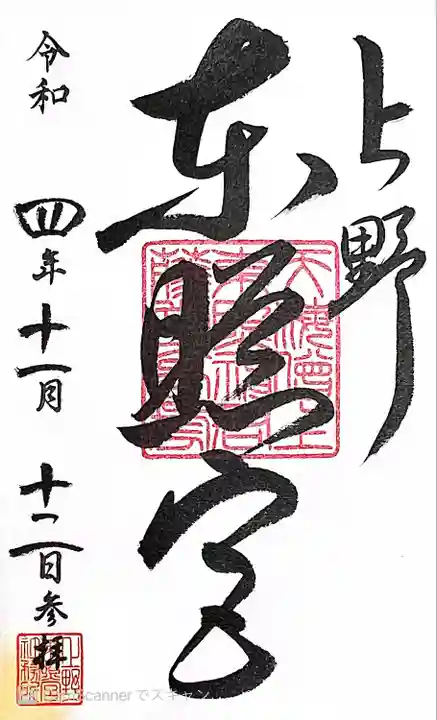 上野
東照宮
令和四年十一月十二日参拝
Scannerでスキャン